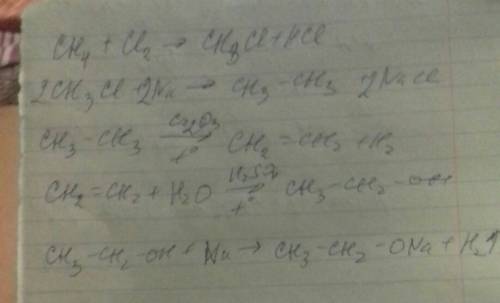 CH4 + Cl2 → CH3Cl + HCl
2CH3Cl 2Na → CH3-CH3 2NaCl
CH3-CH3 Cr2O3 → t° CH2=CH2 + H2
CH2=CH2 + H2O H2SO4 → t° CH3-CH2-OH
CH3-CH2-OH + Na → CH3-CH2-ONa + H2↑